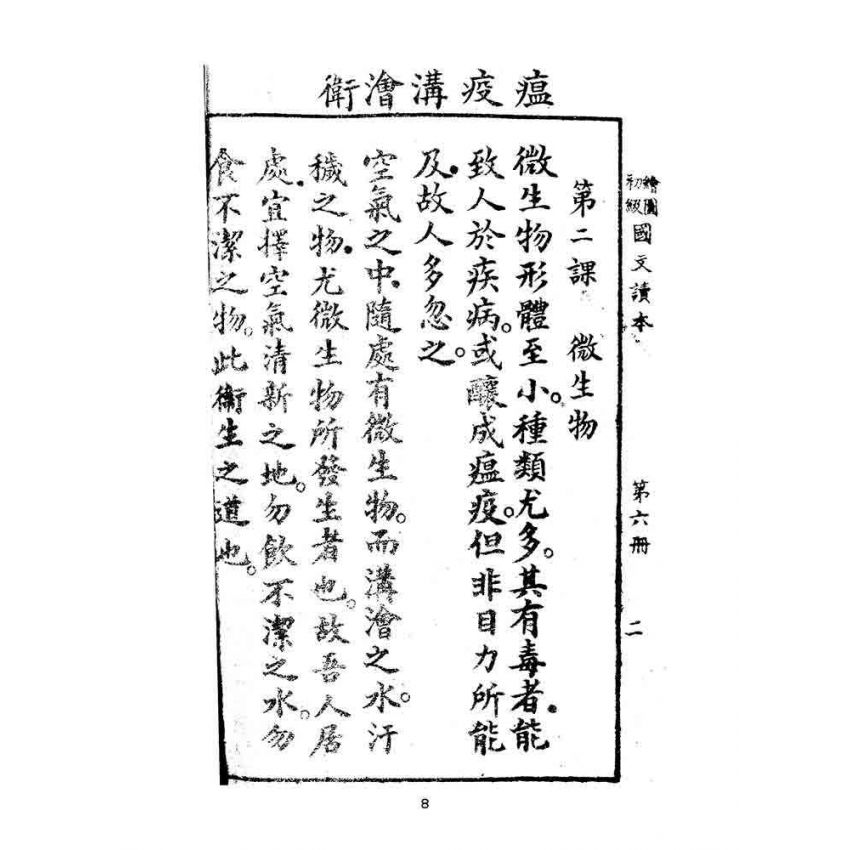 瘟疫溝澮衛
繪圖初級國文讀本 第六冊 二
第二課 微生物
微生物形體至小。種類尤多。其有毒者.能
致人於疾病。或釀成瘟疫。但非目力所能
及.故人多忽之。
空氣之中.隨處有微生物。而溝澮之水。汙
穢之物.尤微生物所發生者也。故吾人居
處.宜擇空氣清新之地。勿飲不潔之水。勿
食不潔之物。此衞生之道也。
8